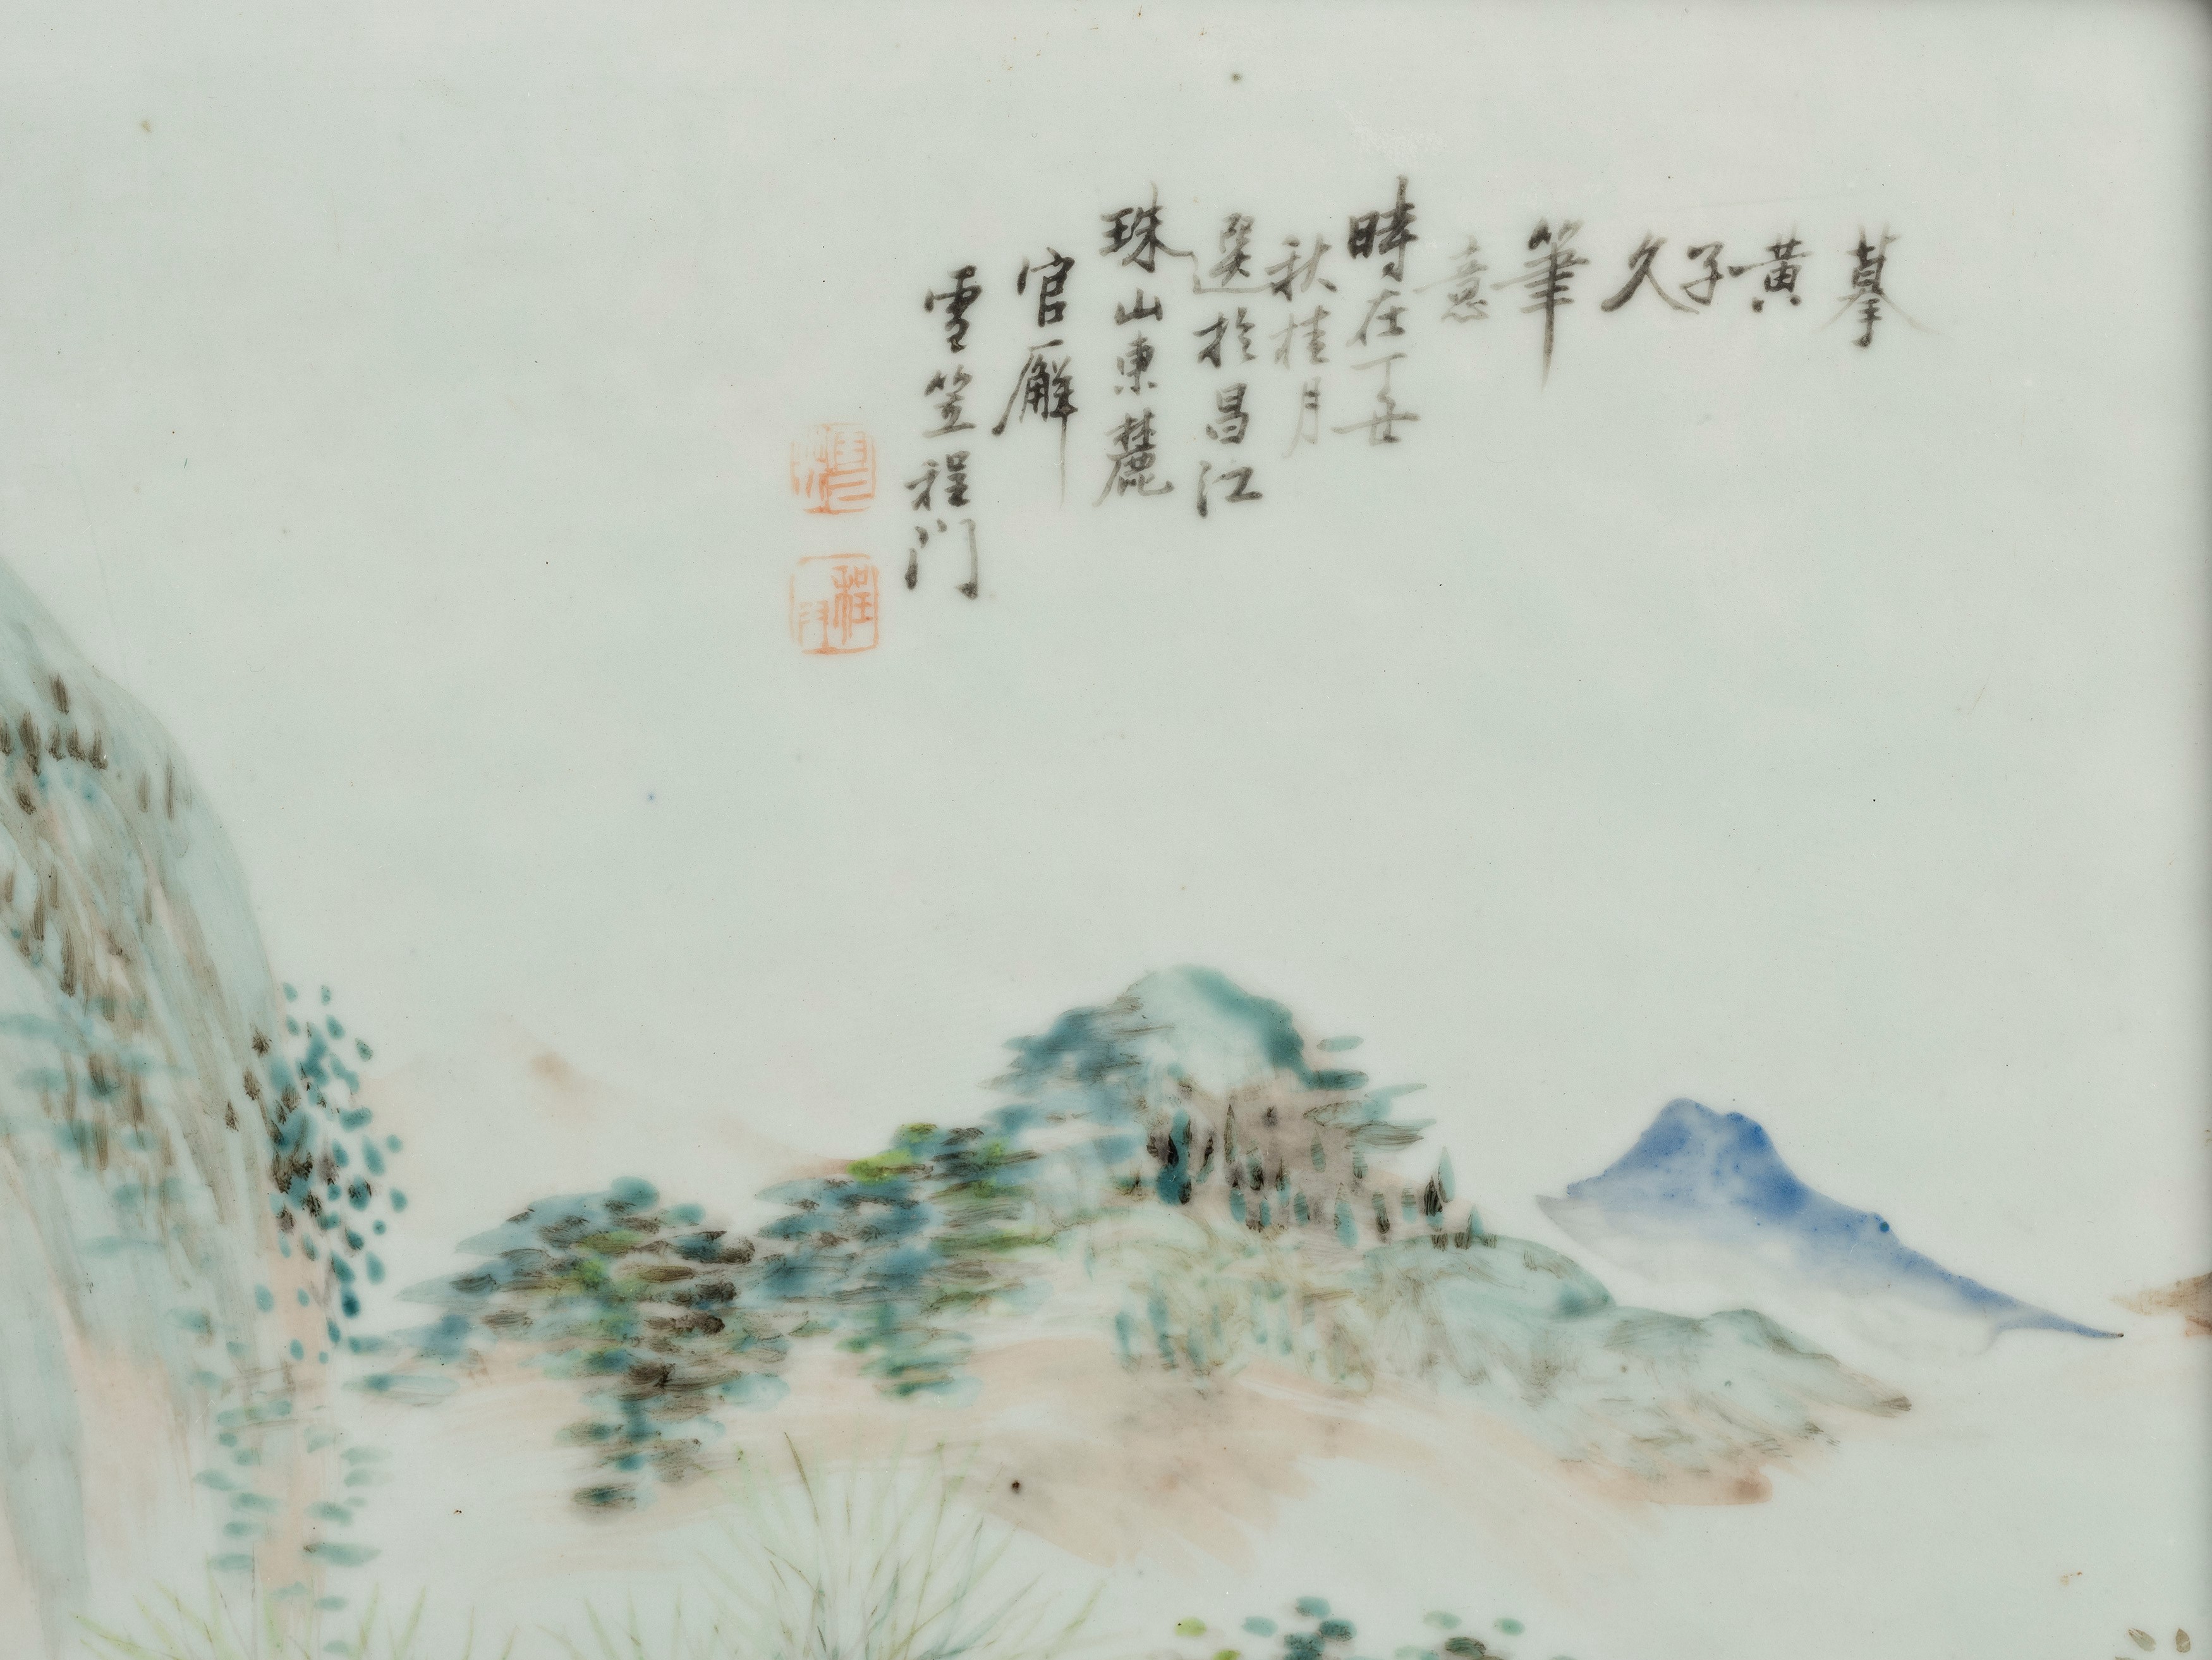 摹黃子久筆意
時在丁丑
秋桂月
選於昌江
珠山東麓
官廨
雪笠程門
程門